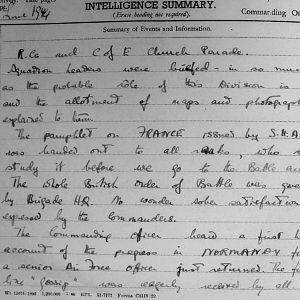 INTELLIGENCE SUMMARY.
(Erase heading not required).
Commanding Of
June 1944
Summary of Events and Information.
R.Cs and C of E Church Parade.
Squadron Leaders were briefed - in so mu
as the probable role of this Division is
and the allotment of maps and photograph
explained to them.
The pamphlet on FRANCE issued by S.H.A
was handed out to all ranks, who
study it before we go to the Battle
The whole British Order of Battle was give
by Brigade HQ. No wonder sober satisfaction
expressed by the Commanders.
The Commanding Officer heard a first h
account of the progress in NORMANDY f
a senior Air Force officer just returned. The f
line "gossip" was eagerly received by all.